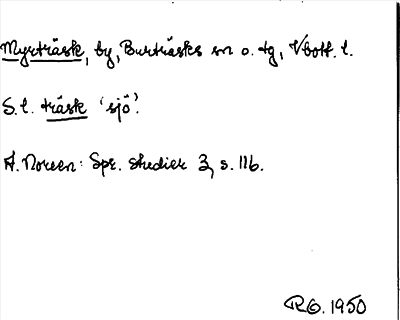 Myrträsk, by, Burträsks sn o. tg, Vbott. l.
S.l. träsk 'sjö'.
A. Noreen: Spr. studier 3, s. 116.
1950